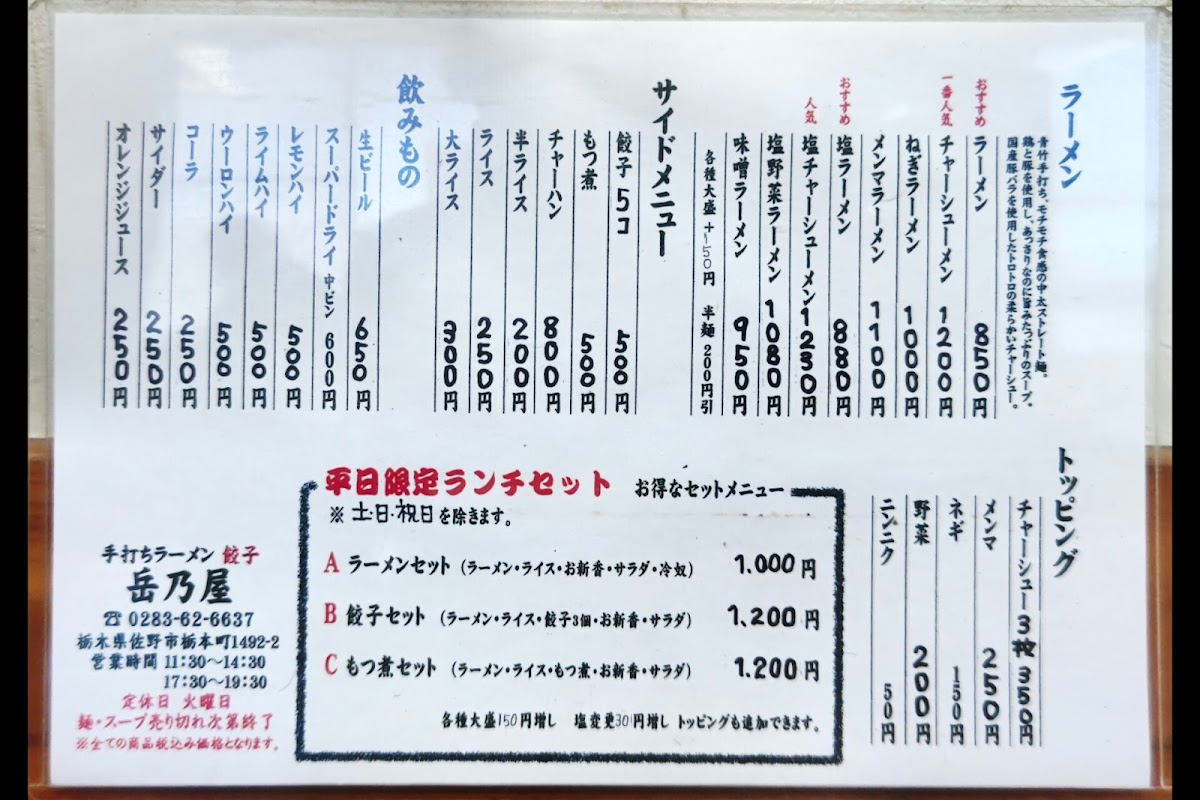 ラーメン
青竹手打ち、モチモチ食感の中太ストレート麺。
鶏と豚を使用し、あっさりなのに旨みたっぷりのスープ。
国産豚バラを使用したトロトロの柔らかいチャーシュー。
おすすめ
ラーメン 850円
一番人気
チャーシューメン 1200円
ねぎラーメン 1000円
メンマラーメン 1100円
おすすめ
塩ラーメン 880円
人気
塩チャーシューメン 1230円
塩野菜ラーメン 1080円
味噌ラーメン 950円
各種大盛 +150円 半麺 200円引
サイドメニュー
餃子 5コ 500円
もつ煮 500円
チャーハン 800円
半ライス 200円
ライス 250円
大ライス 300円
飲みもの
生ビール 650円
スーパードライ 中ビン 600円
レモンハイ 500円
ライムハイ 500円
ウーロンハイ 500円
コーラ 250円
サイダー 250円
オレンジジュース 250円
トッピング
チャーシュー3枚 350円
メンマ 250円
ネギ 150円
野菜 200円
ニンニク 50円
平日限定ランチセット お得なセットメニュー
※ 土・日・祝日を除きます。
A ラーメンセット (ラーメン・ライス・お新香・サラダ・冷奴) 1.000円
B 餃子セット (ラーメン・ライス・餃子3個・お新香・サラダ) 1.200円
C もつ煮セット (ラーメン・ライス・もつ煮・お新香・サラダ) 1.200円
各種大盛150円増し 塩変更30円増し トッピングも追加できます。
手打ちラーメン 餃子
岳乃屋
☎ 0283-62-6637
栃木県佐野市栃本町1492-2
営業時間 11:30〜14:30
17:30〜19:30
定休日 火曜日
麺・スープ売り切れ次第終了
※全ての商品税込み価格となります。